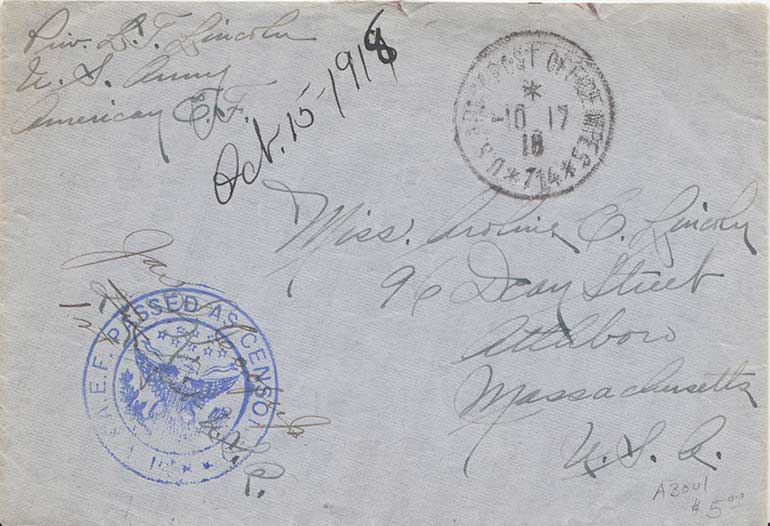 Priv. L. T. Lincoln
U. S. Army
American E. F.
Oct. 15-1918
U.S. ARMY POST OFFICE M.P.E.S.
-10 17
18
* 714 *
Miss. Caroline E. Lincoln
96 Dean Street
Attleboro
Massachusetts
U. S. A.
A.E.F. PASSED AS CENSORED
A3001
$5.00